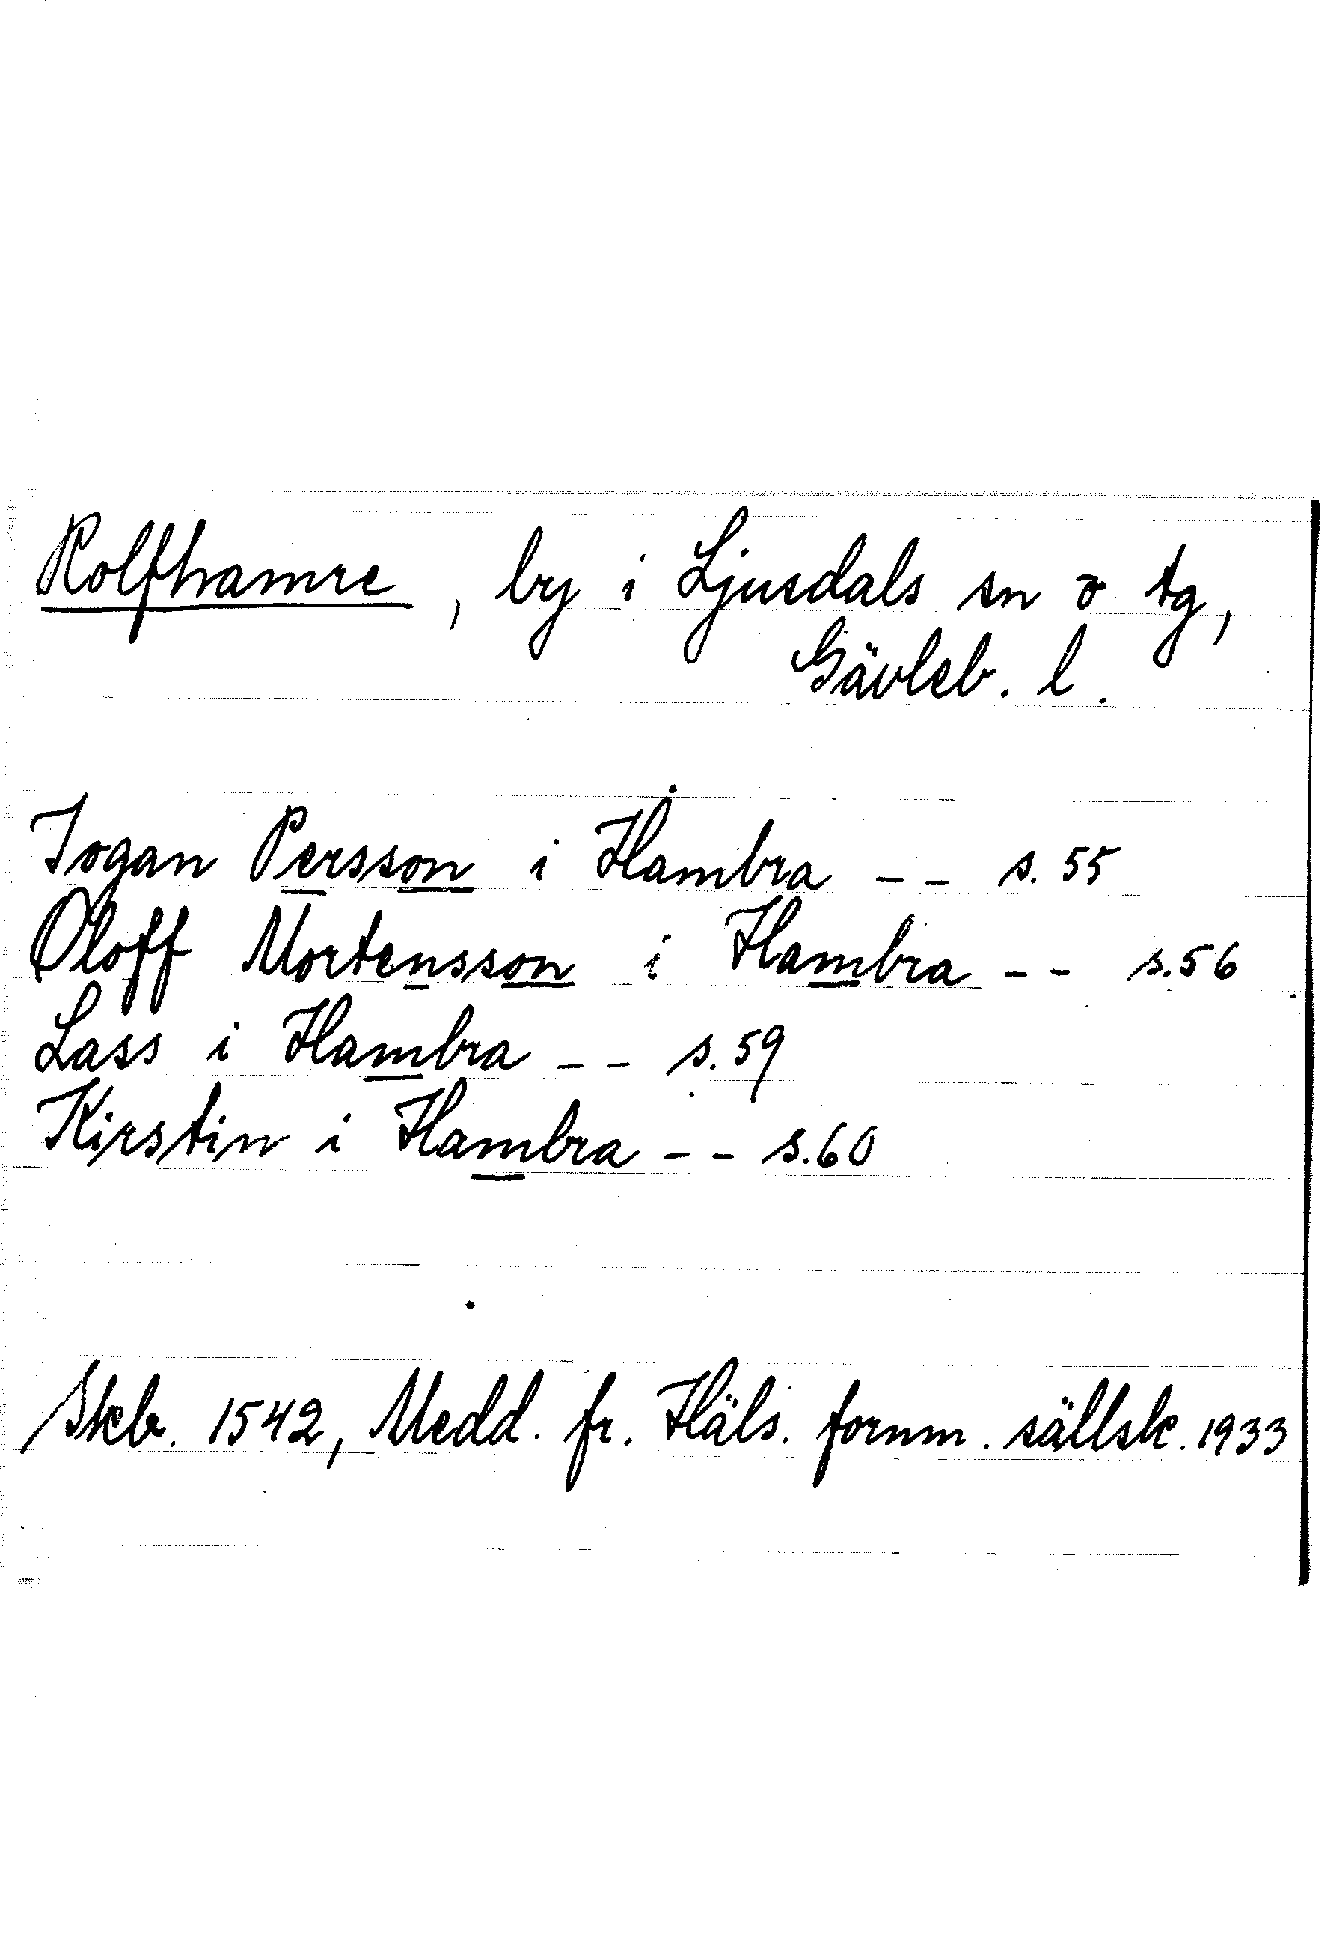 Rolfhamre, by i Ljusdals sn o tg,
Gävleb. l.
Jogan Persson i Hambra -- s. 55
Oloff Mortensson i Hambra -- s. 56
Lass i Hambra -- s. 59
Kirstin i Hambra -- s. 60
Skb. 1542, Medd. fr. Häls. fornm. sällsk. 1933